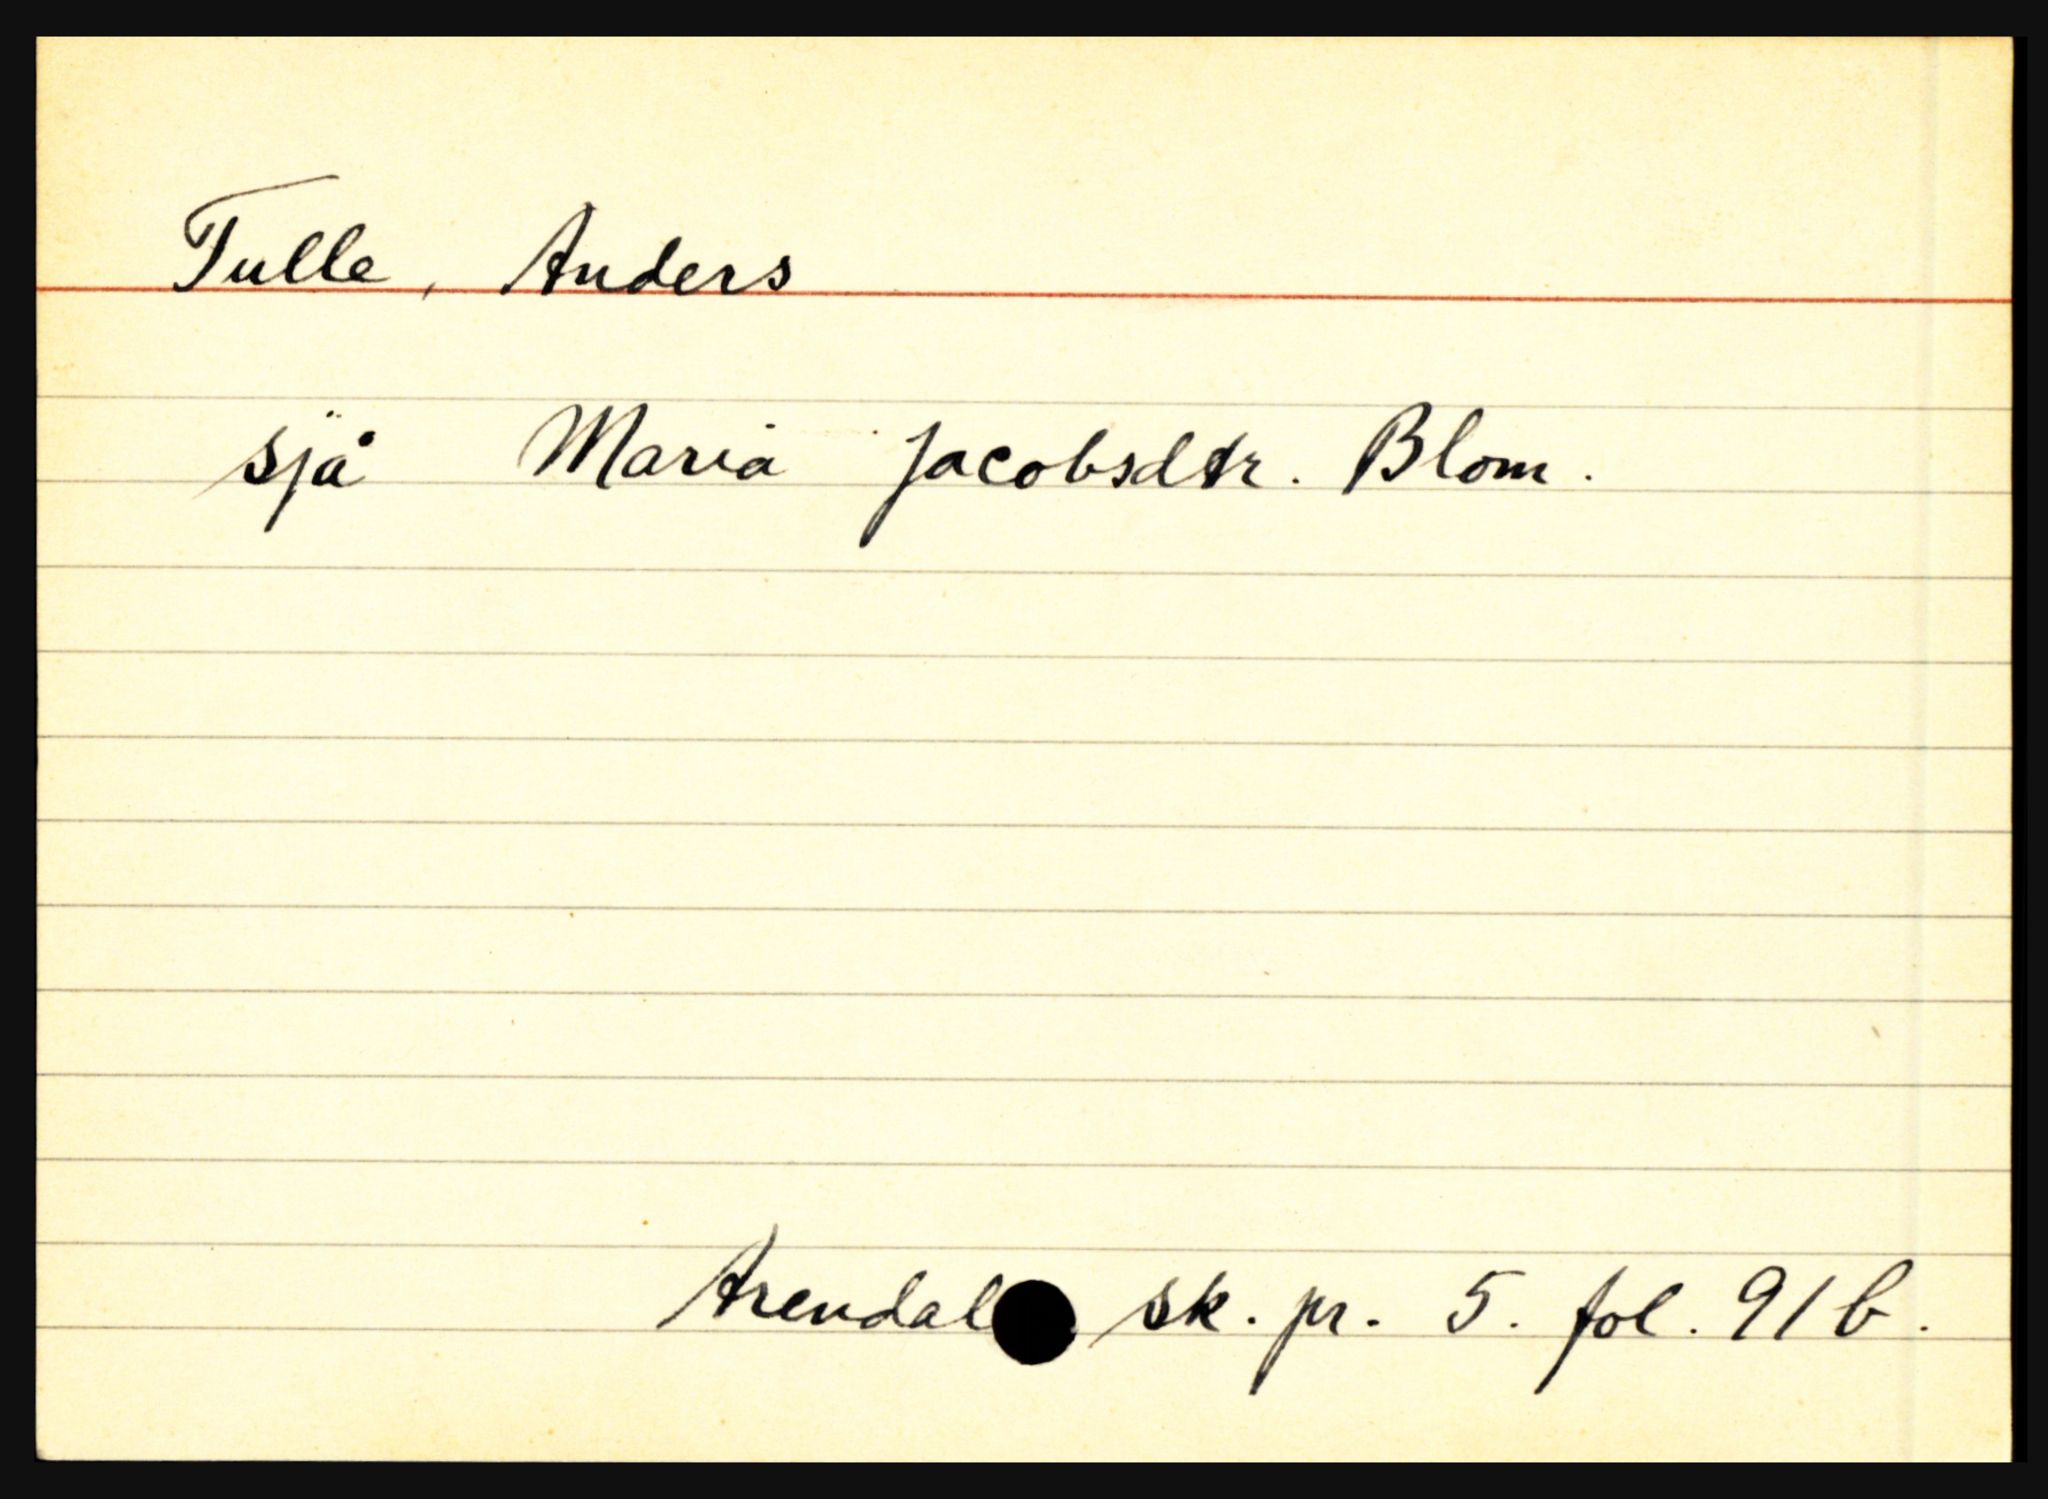 Tulle, Anders
sjå Maria Jacobsdtr. Blom.
Arendal sk. pr. 5. fol. 91b.